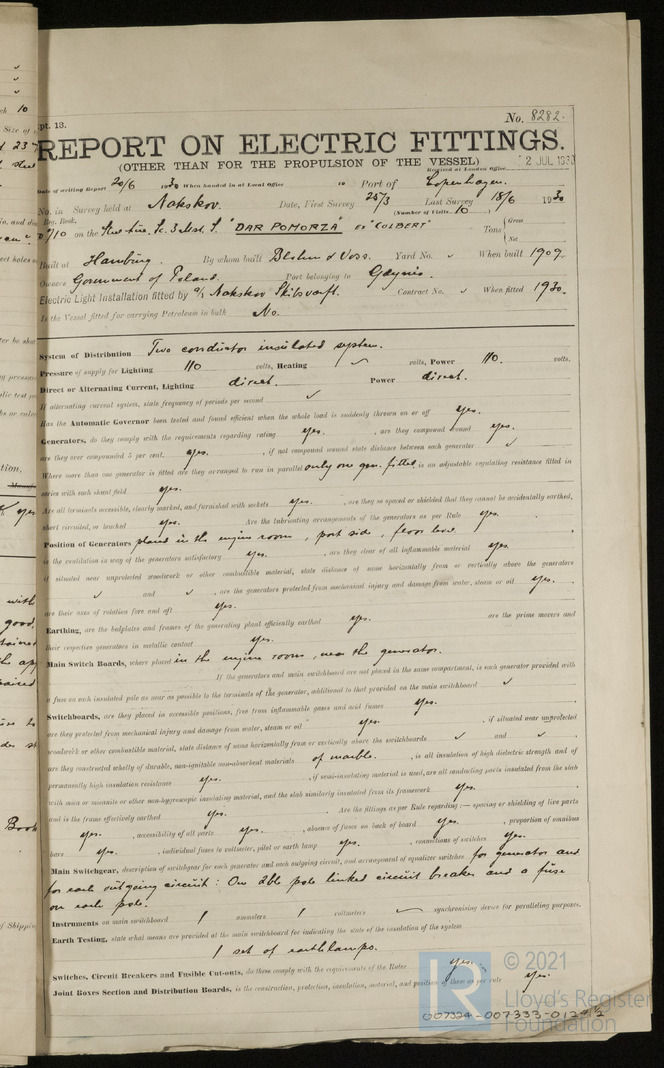 pt. 13.
No. 8282.
REPORT ON ELECTRIC FITTINGS.
(OTHER THAN FOR THE PROPULSION OF THE VESSEL)
Received at London Office 2 JUL 1930
Date of writing Report 20/6 1930 When handed in at Local Office 19 Port of Copenhagen.
No. in Survey held at Nakskov. Date, First Survey 25/3 Last Survey 18/6 1930
Reg. Book. (Number of Visits 10
on the "DAR POMORZA" ex "COLBERT" Tons { Gross
Net
Built at Hamburg. By whom built Blohm & Voss. Yard No. ✓ When built 1909.
Owners Government of Poland. Port belonging to Gdynia.
Electric Light Installation fitted by A/S Nakskov Skibsværft. Contract No. ✓ When fitted 1930.
Is the Vessel fitted for carrying Petroleum in bulk No.
System of Distribution Two conductor insulated system.
Pressure of supply for Lighting 110 volts, Heating ✓ volts, Power 110. volts.
Direct or Alternating Current, Lighting direct. Power direct.
If alternating current system, state frequency of periods per second ✓
Has the Automatic Governor been tested and found efficient when the whole load is suddenly thrown on or off yes.
Generators, do they comply with the requirements regarding rating yes. , are they compound wound yes.
are they over compounded 5 per cent. yes. , if not compound wound state distance between each generator ✓
Where more than one generator is fitted are they arranged to run in parallel only one gen. fitted, is an adjustable regulating resistance fitted in
series with each shunt field yes.
Are all terminals accessible, clearly marked, and furnished with sockets yes. , are they so spaced or shielded that they cannot be accidentally earthed,
short circuited, or touched yes. Are the lubricating arrangements of the generators as per Rule yes.
Position of Generators placed in the engine room, port side, floor level
is the ventilation in way of the generators satisfactory yes. , are they clear of all inflammable material yes.
if situated near unprotected woodwork or other combustible material, state distance of same horizontally from or vertically above the generators
✓ and ✓ , are the generators protected from mechanical injury and damage from water, steam or oil yes.
are their axes of rotation fore and aft yes.
Earthing, are the bedplates and frames of the generating plant efficiently earthed yes. are the prime movers and
their respective generators in metallic contact yes.
Main Switch Boards, where placed in the engine room, near the generator.
If the generators and main switchboard are not placed in the same compartment, is each generator provided with
a fuse on each insulated pole as near as possible to the terminals of the generator, additional to that provided on the main switchboard ✓
Switchboards, are they placed in accessible positions, free from inflammable gases and acid fumes yes.
are they protected from mechanical injury and damage from water, steam or oil yes. , if situated near unprotected
woodwork or other combustible material, state distance of same horizontally from or vertically above the switchboards ✓ and ✓
are they constructed wholly of durable, non-ignitable non-absorbent materials of marble. , is all insulation of high dielectric strength and of
permanently high insulation resistance yes. , if semi-insulating material is used, are all conducting parts insulated from the slab
with mica or micanite or other non-hygroscopic insulating material, and the slab similarly insulated from its framework yes.
and is the frame effectively earthed yes. Are the fittings as per Rule regarding:— spacing or shielding of live parts
yes. , accessibility of all parts yes. , absence of fuses on back of board yes. , proportion of omnibus
bars yes. , individual fuses to voltmeter, pilot or earth lamp yes. , connections of switches yes.
Main Switchgear, description of switchgear for each generator and each outgoing circuit, and arrangement of equalizer switches for generator and
for each outgoing circuit: One dble pole linked circuit breaker and a fuse
on each pole.
Instruments on main switchboard 1 ammeters 1 voltmeters ✓ synchronising device for paralleling purposes.
Earth Testing, state what means are provided at the main switchboard for indicating the state of the insulation of the system
1 set of earthlamps.
Switches, Circuit Breakers and Fusible Cut-outs, do these comply with the requirements of the Rules yes.
Joint Boxes Section and Distribution Boards, is the construction, protection, insulation, material, and position of them as per rule yes.
© 2021
Lloyd's Register
Foundation
007324-007333-0124 1/2